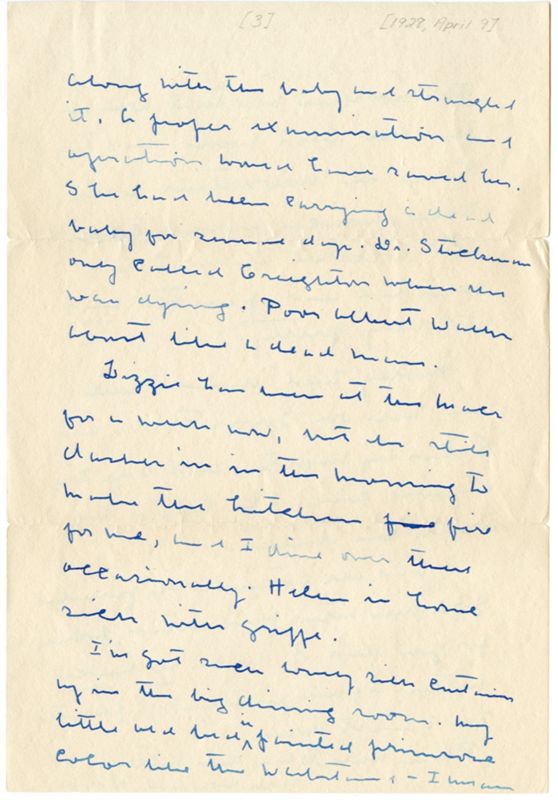 [3] [1928, April 9]
along with the baby and strangled
it. A proper examination and
operation would have saved her.
She had been carrying a dead
baby for several days. Dr. Stockman
only called Creighton when she
was dying. Poor Albert walks
about like a dead man.
Lizzie has been at the
for a week now, but she still
dashes in in the morning to
make the kitchen fire
for me, and I dine over there
occasionally. Helen is home
sick with grippe.
I've got such lovely silk curtains
up in the big dining room. My
little old bed painted primrose
color like the - I mean